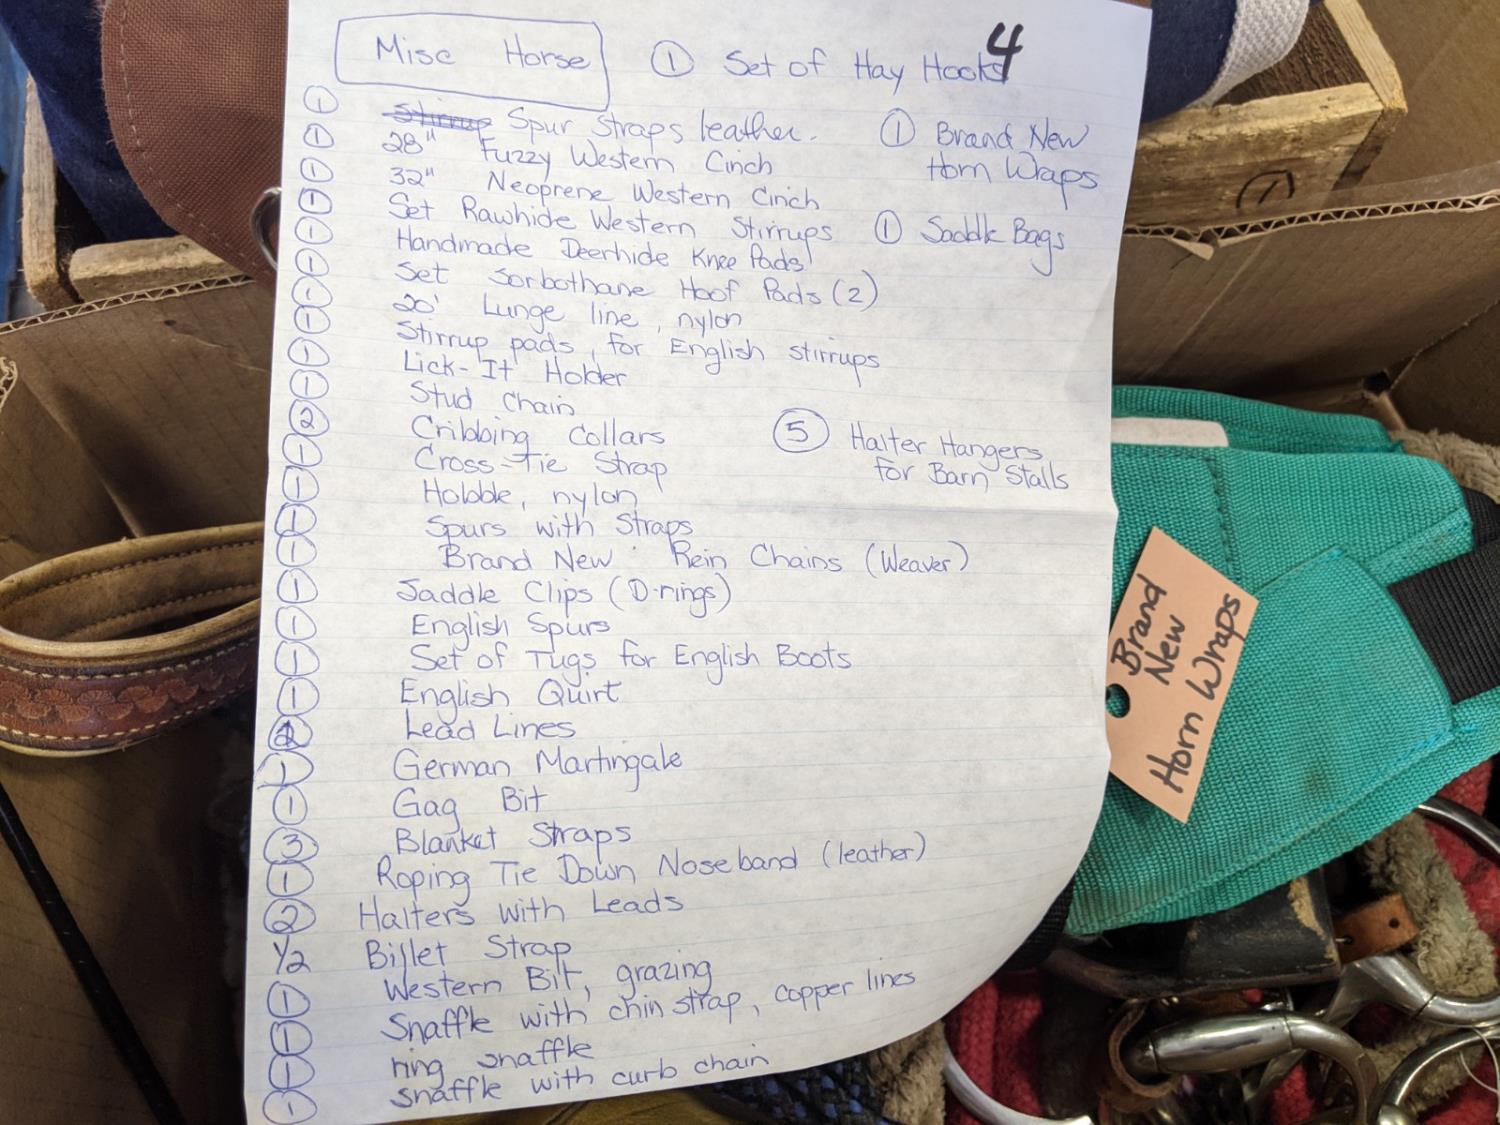 4
Misc Horse
① Set of Hay Hooks
① Spur Straps leather.
① Brand New
Horn Wraps
① 28" Fuzzy Western Cinch
① 32" Neoprene Western Cinch
① Set Rawhide Western Stirrups
① Saddle Bags
① Handmade Deerhide Knee Pads
① Set Sorbothane Hoof Pads (2)
① 20' Lunge line, nylon
① Stirrup pads, for English stirrups
① Lick-It Holder
① Stud Chain
② Cribbing Collars
⑤ Halter Hangers
for Barn Stalls
① Cross-Tie Strap
① Hobble, nylon
① Spurs with Straps
① Brand New Rein Chains (Weaver)
① Saddle Clips (D-rings)
① English Spurs
① Set of Tugs for English Boots
① English Quirt
② Lead Lines
① German Martingale
① Gag Bit
③ Blanket Straps
① Roping Tie Down Noseband (leather)
② Halters with Leads
1/2 Billet Strap
① Western Bit, grazing
① Snaffle with chin strap, copper lines
① ring snaffle
① snaffle with curb chain
Brand
New
Horn Wraps
①